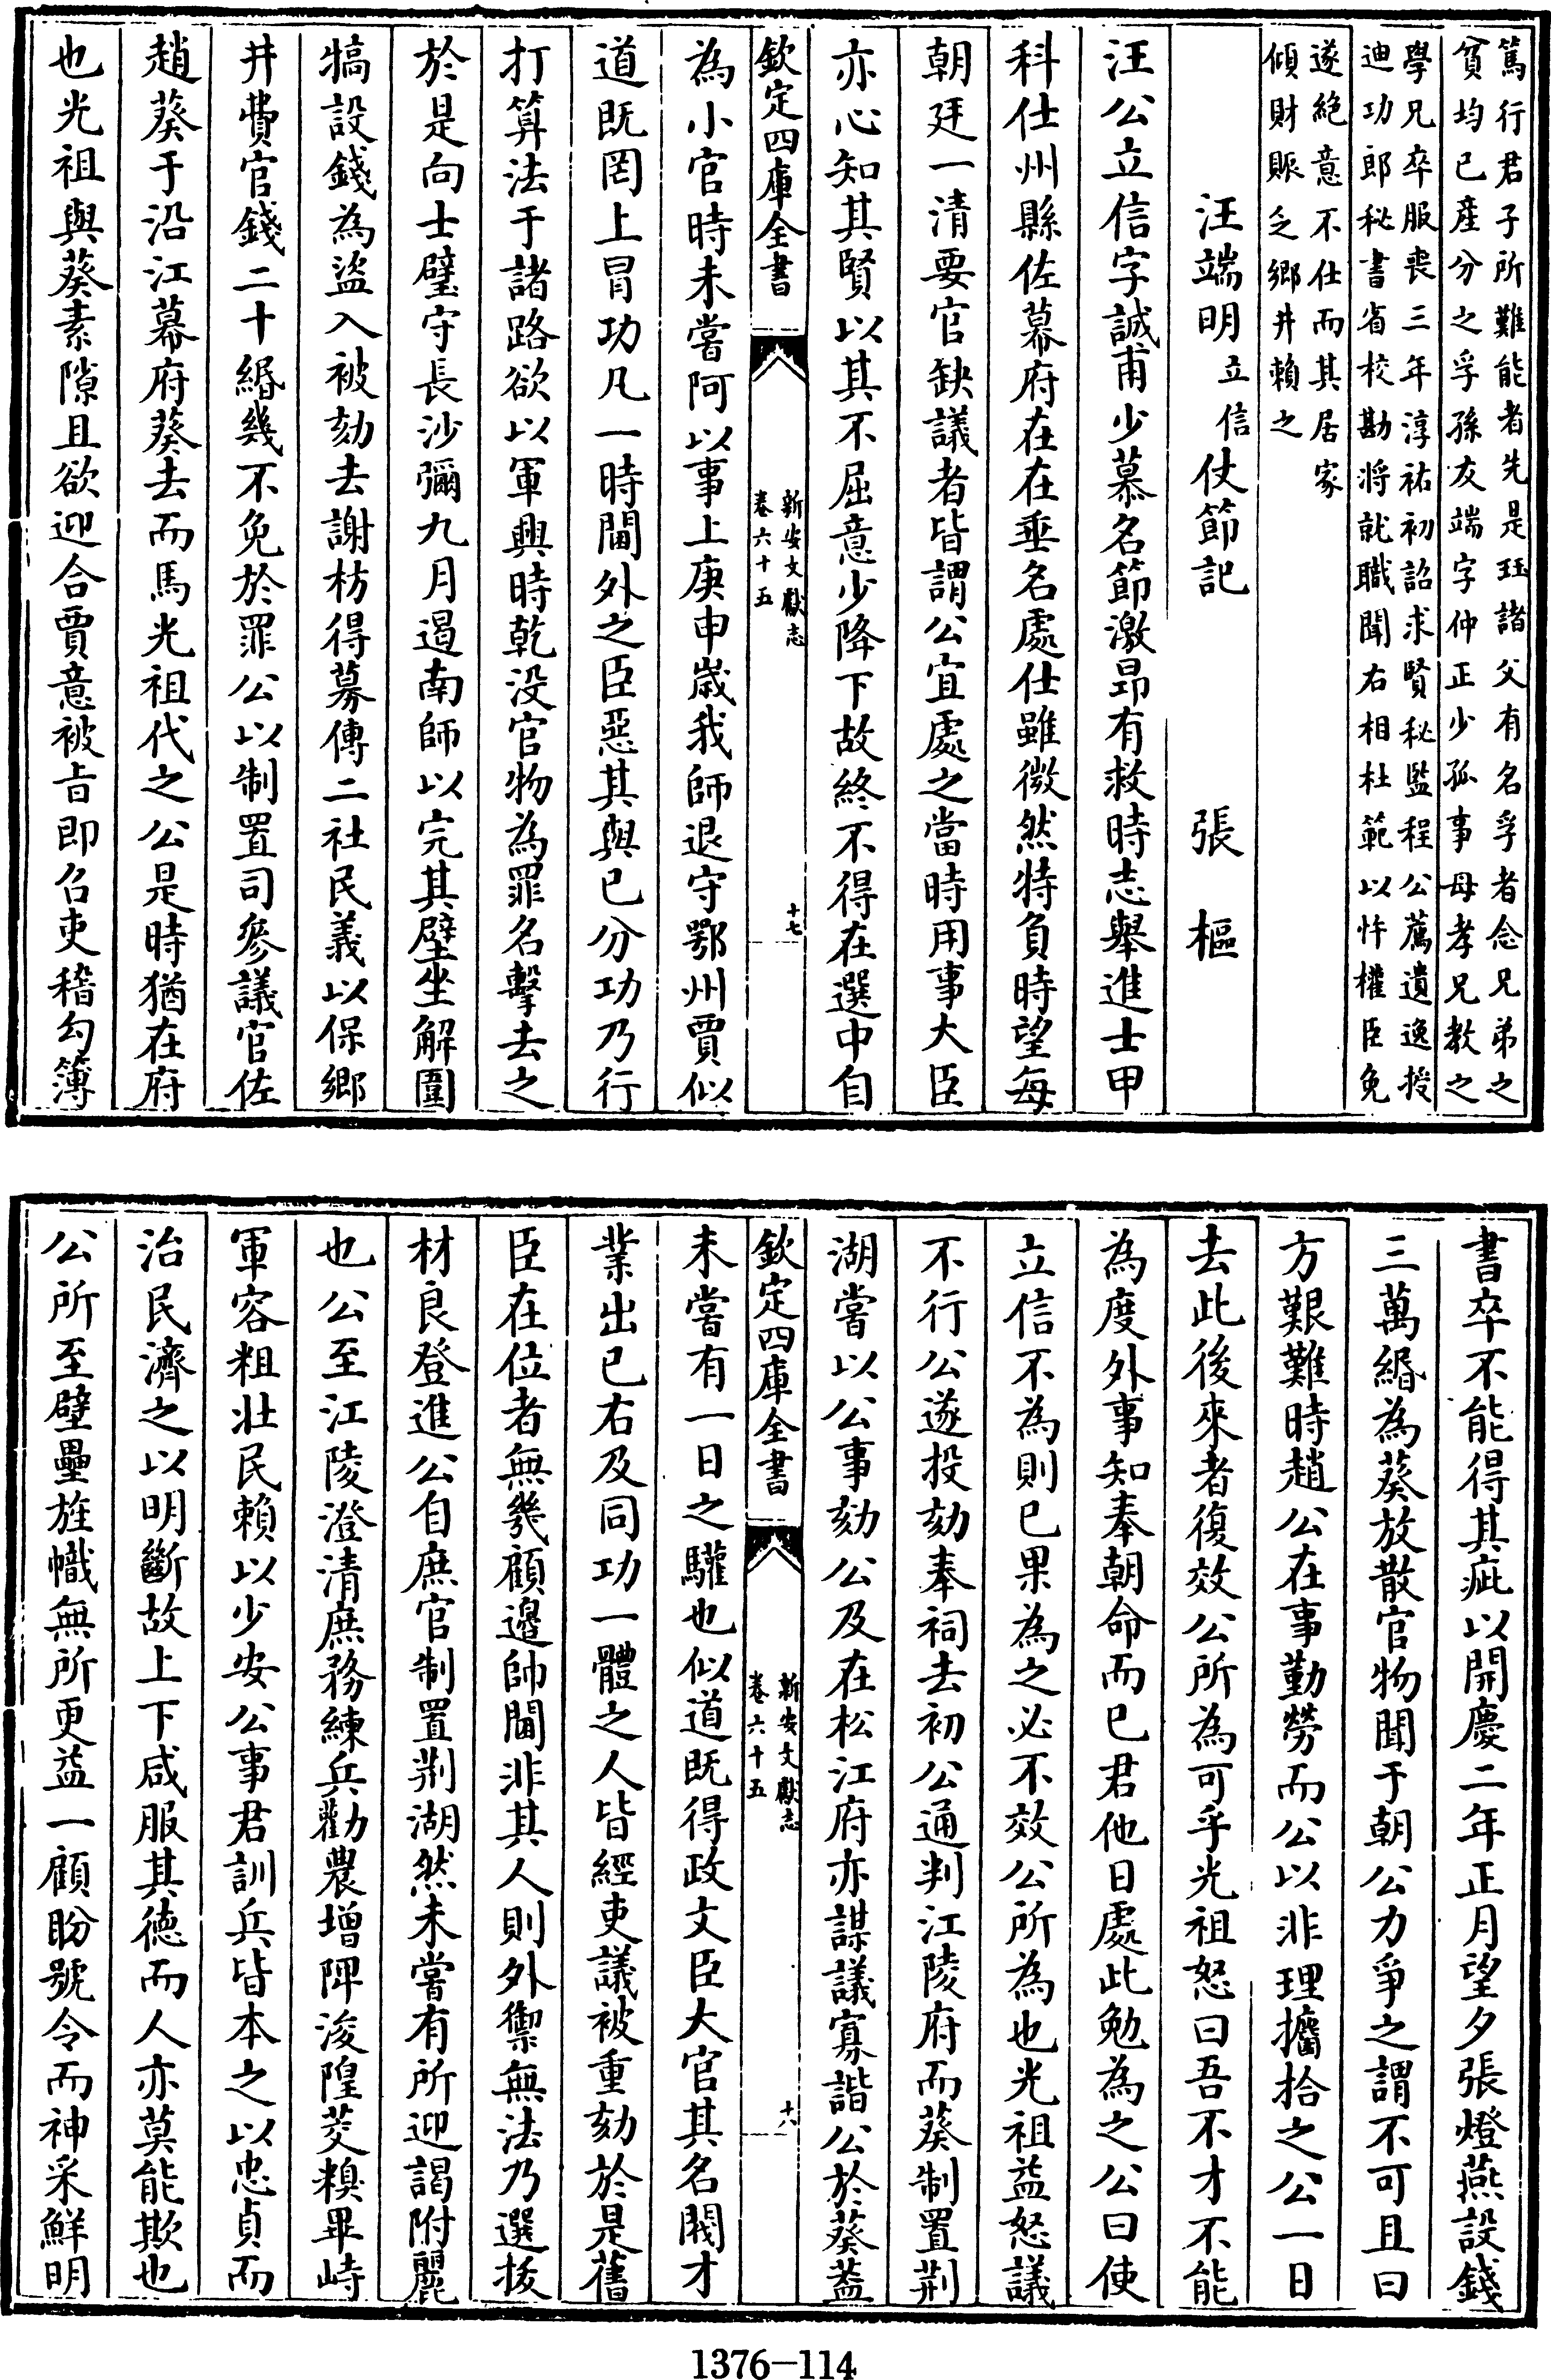 篤行君子所難能者先是珏諸父有名孚者念兄弟之
貧均己產分之孚孫友端字仲正少孤事母孝兄教之
學兄卒服喪三年淳祐初詔求賢秘監程公薦遺逸授
迪功郎秘書省校勘將就職聞右相杜範以忤權臣免
遂絕意不仕而其居家
傾財賑乏鄉井賴之
汪端明立信仗節記 張樞
汪公立信字誠甫少慕名節激昻有救時志舉進士甲
科仕州縣佐幕府在在垂名處仕雖微然特負時望每
朝廷一清要官缺議者皆謂公宜處之當時用事大臣
亦心知其賢以其不屈意少降下故終不得在選中自
欽定四庫全書
新安文獻志
卷六十五
十七
為小官時未嘗阿以事上庚申歲我師退守鄂州賈似
道既罔上冐功凡一時閫外之臣惡其與已分功乃行
打算法于諸路欲以軍興時乾没官物為罪名擊去之
於是向士璧守長沙彌九月遏南師以完其壁坐解圍
犒設錢為盜入被劾去謝枋得募傳二社民義以保鄉
井費官錢二十緡幾不免於罪公以制置司參議官佐
趙葵于沿江幕府葵去而馬光祖代之公是時猶在府
也光祖與葵素隙且欲迎合賈意被㫖即召吏稽勾簿
書卒不能得其疵以開慶二年正月望夕張燈燕設錢
三萬緡為葵放散官物聞于朝公力爭之謂不可且曰
方艱難時趙公在事勤勞而公以非理攟拾之公一日
去此後來者復效公所為可乎光祖怒曰吾不才不能
為度外事知奉朝命而已君他日處此勉為之公曰使
立信不為則已果為之必不效公所為也光祖益怒議
不行公遂投劾奉祠去初公通判江陵府而葵制置荆
湖嘗以公事劾公及在松江府亦謀議寡諧公於葵葢
欽定四庫全書
新安文獻志
卷六十五
十八
未嘗有一日之驩也似道既得政文臣大官其名閥才
業出已右及同功一體之人皆經吏議被重劾於是舊
臣在位者無幾顧邊帥閫非其人則外禦無法乃選拔
材良登進公自庶官制置荆湖然未嘗有所迎謁附麗
也公至江陵澄清庶務練兵勸農增陴浚隍茭糗畢峙
軍容粗壯民賴以少安公事君訓兵皆本之以忠貞而
治民濟之以明斷故上下咸服其德而人亦莫能欺也
公所至壁壘旌幟無所更益一顧盼號令而神采鮮明
1376—114